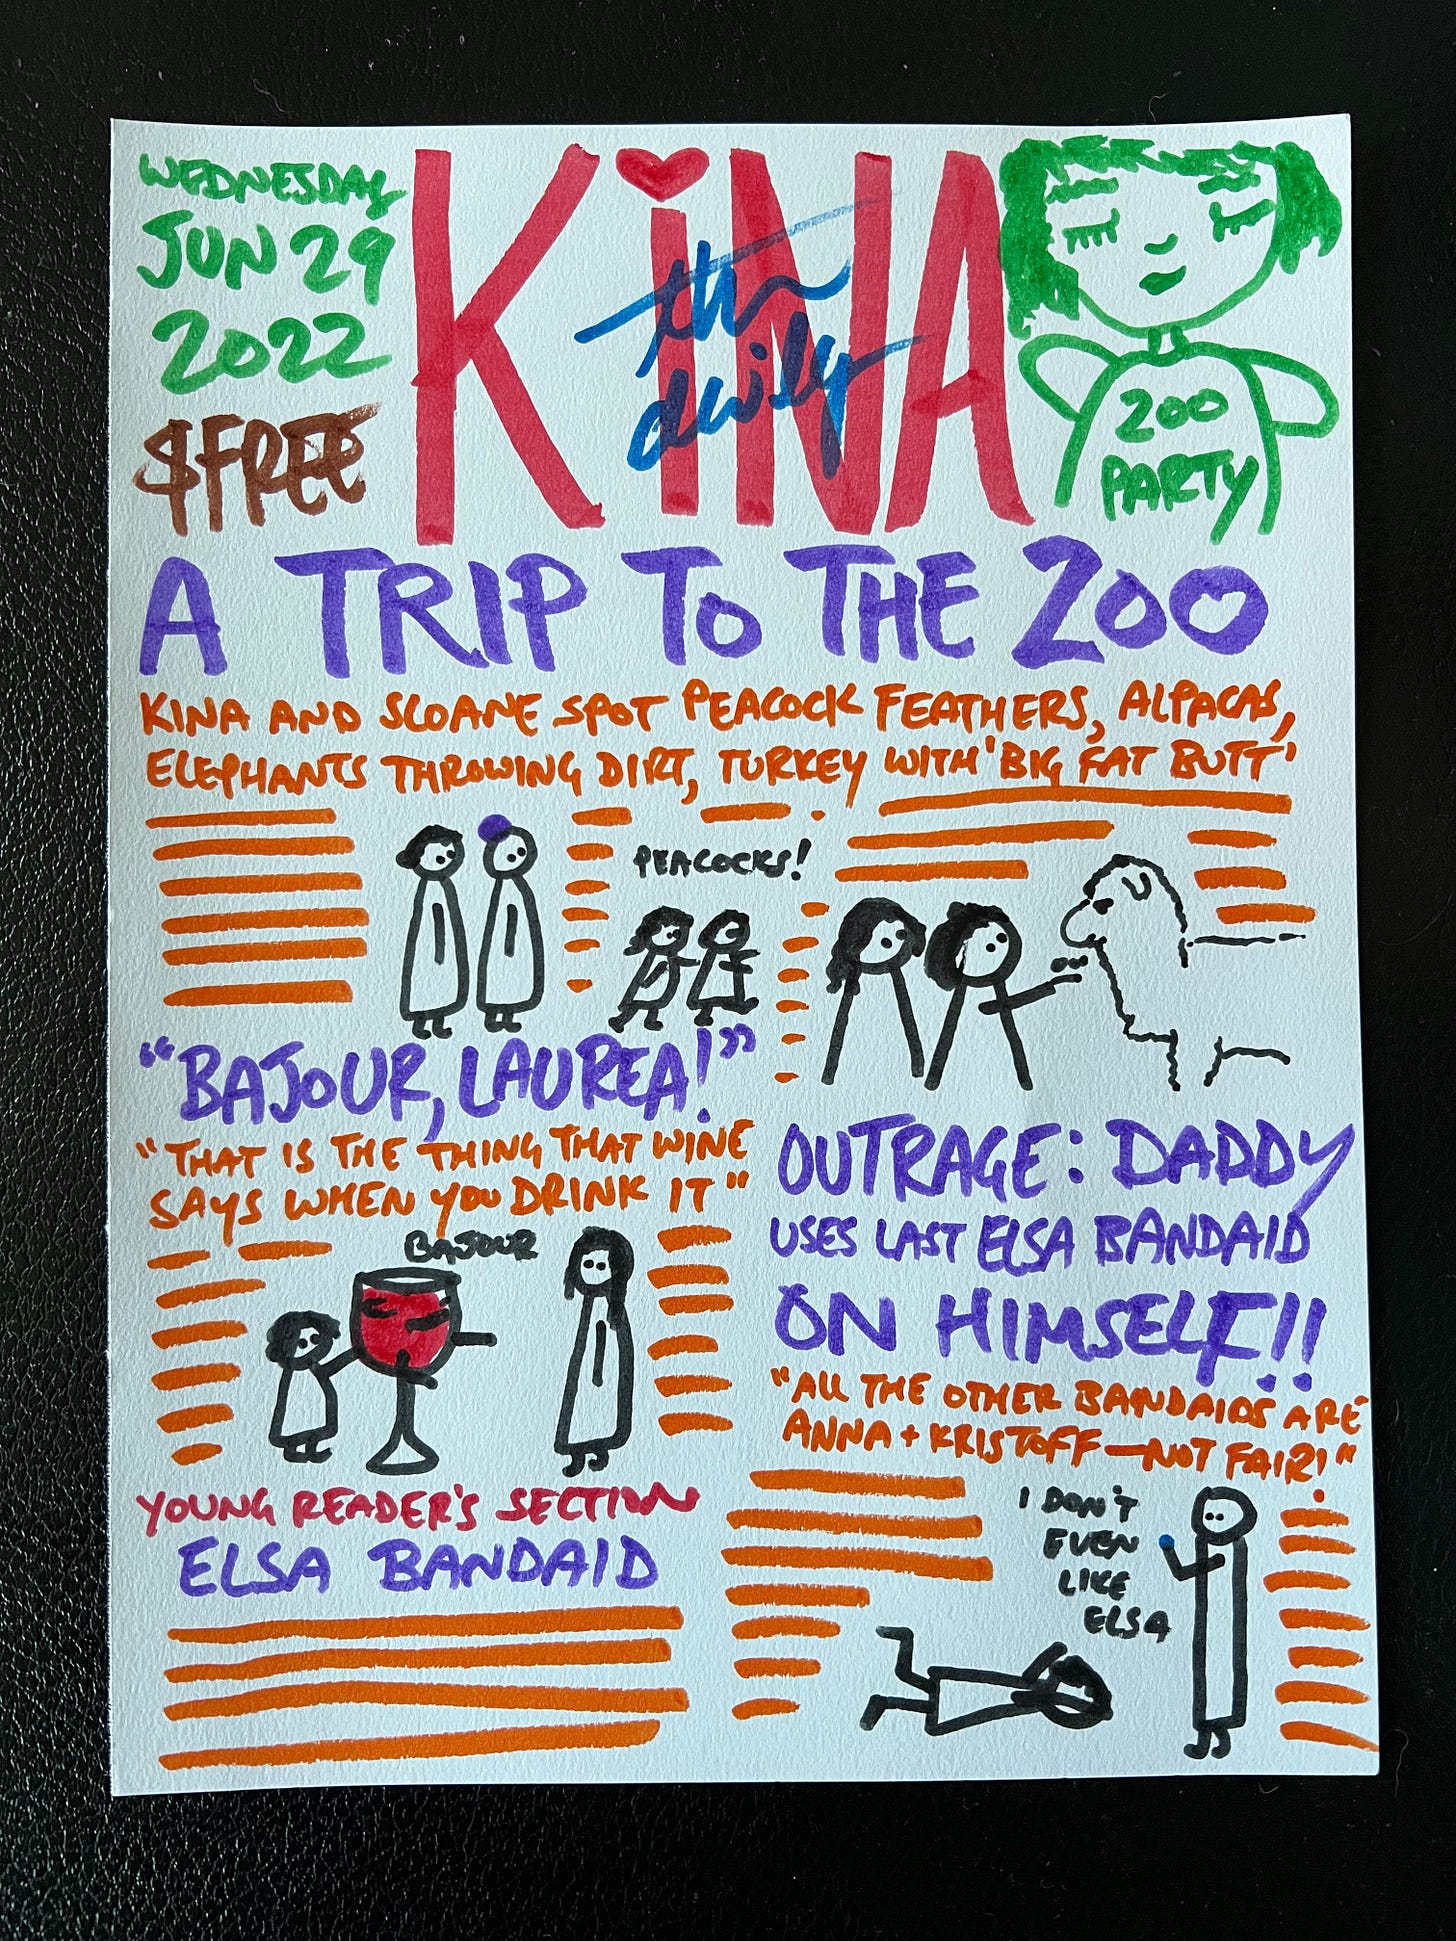 WEDNESDAY
JUN 29
2022
$FREE
KINA
the daily
ZOO
PARTY
A TRIP TO THE ZOO
KINA AND SLOANE SPOT PEACOCK FEATHERS, ALPACAS,
ELEPHANTS THROWING DIRT, TURKEY WITH 'BIG FAT BUTT'
PEACOCKS!
"BAJOUR, LAUREA!"
"THAT IS THE THING THAT WINE
SAYS WHEN YOU DRINK IT"
BAJOUR
OUTRAGE: DADDY
USES LAST ELSA BANDAID
ON HIMSELF!!
"ALL THE OTHER BANDAIDS ARE
ANNA + KRISTOFF — NOT FAIR!"
I DON'T
EVEN
LIKE
ELSA
YOUNG READER'S SECTION
ELSA BANDAID